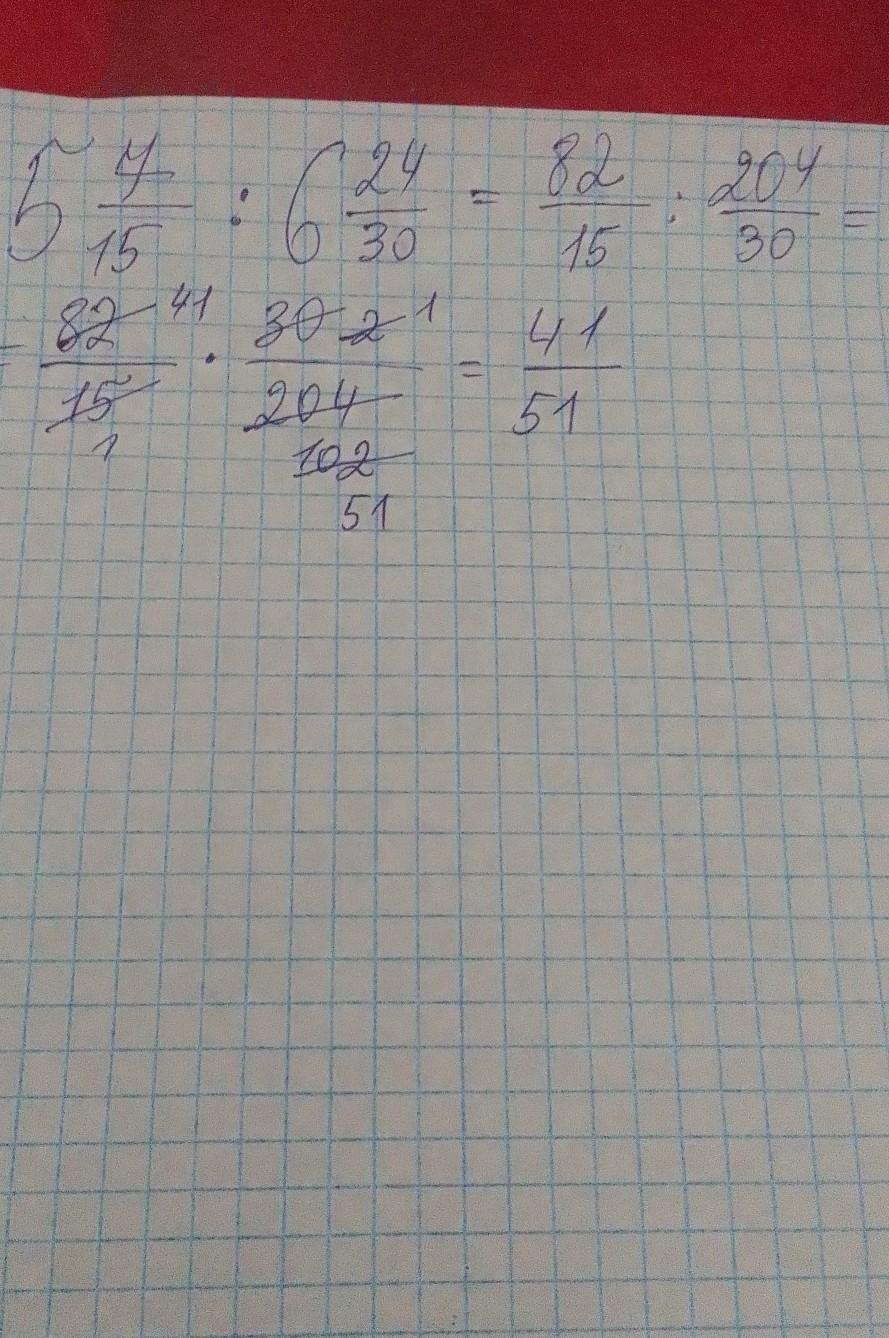 5 7/15 : 6 24/30 = 82/15 : 204/30 =
= 82 41/15 1 · 30 2 1/204 102 51 = 41/51